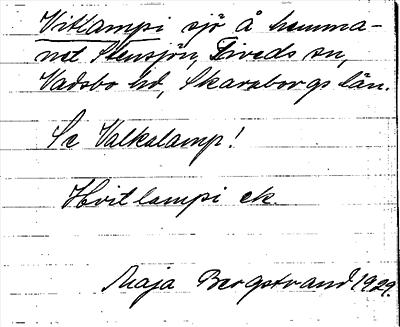 Vitlampi sjö å hemma-
net Stensjön, Tiveds sn,
Vadsbo hd, Skaraborgs län.
Se Valkalamp!
Hvitlampi ek.
Maja Bergstrand 1929.